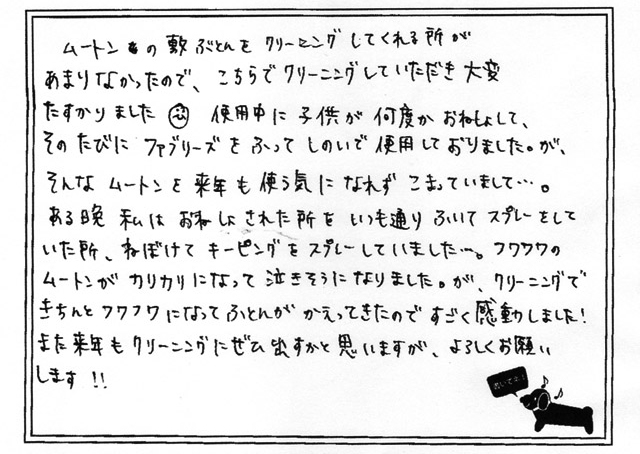 ムートンの敷ぶとんをクリーニングしてくれる所が
あまりなかったので、こちらでクリーニングしていただき大変
たすかりました 使用中に子供が何度かおねしょして、
そのたびにファブリーズをふってしのいで使用しておりました。が、
そんなムートンを来年も使う気になれずこまっていまして…。
ある晩 私はおねしょされた所をいつも通りふいてスプレーをして
いた所、ねぼけてキーピングをスプレーしていました…。フワフワの
ムートンがカリカリになって泣きそうになりました。が、クリーニングで
きちんとフワフワになってふとんがかえってきたのですごく感動しました!
また来年もクリーニングにぜひ出すかと思いますが、よろしくお願い
します!!